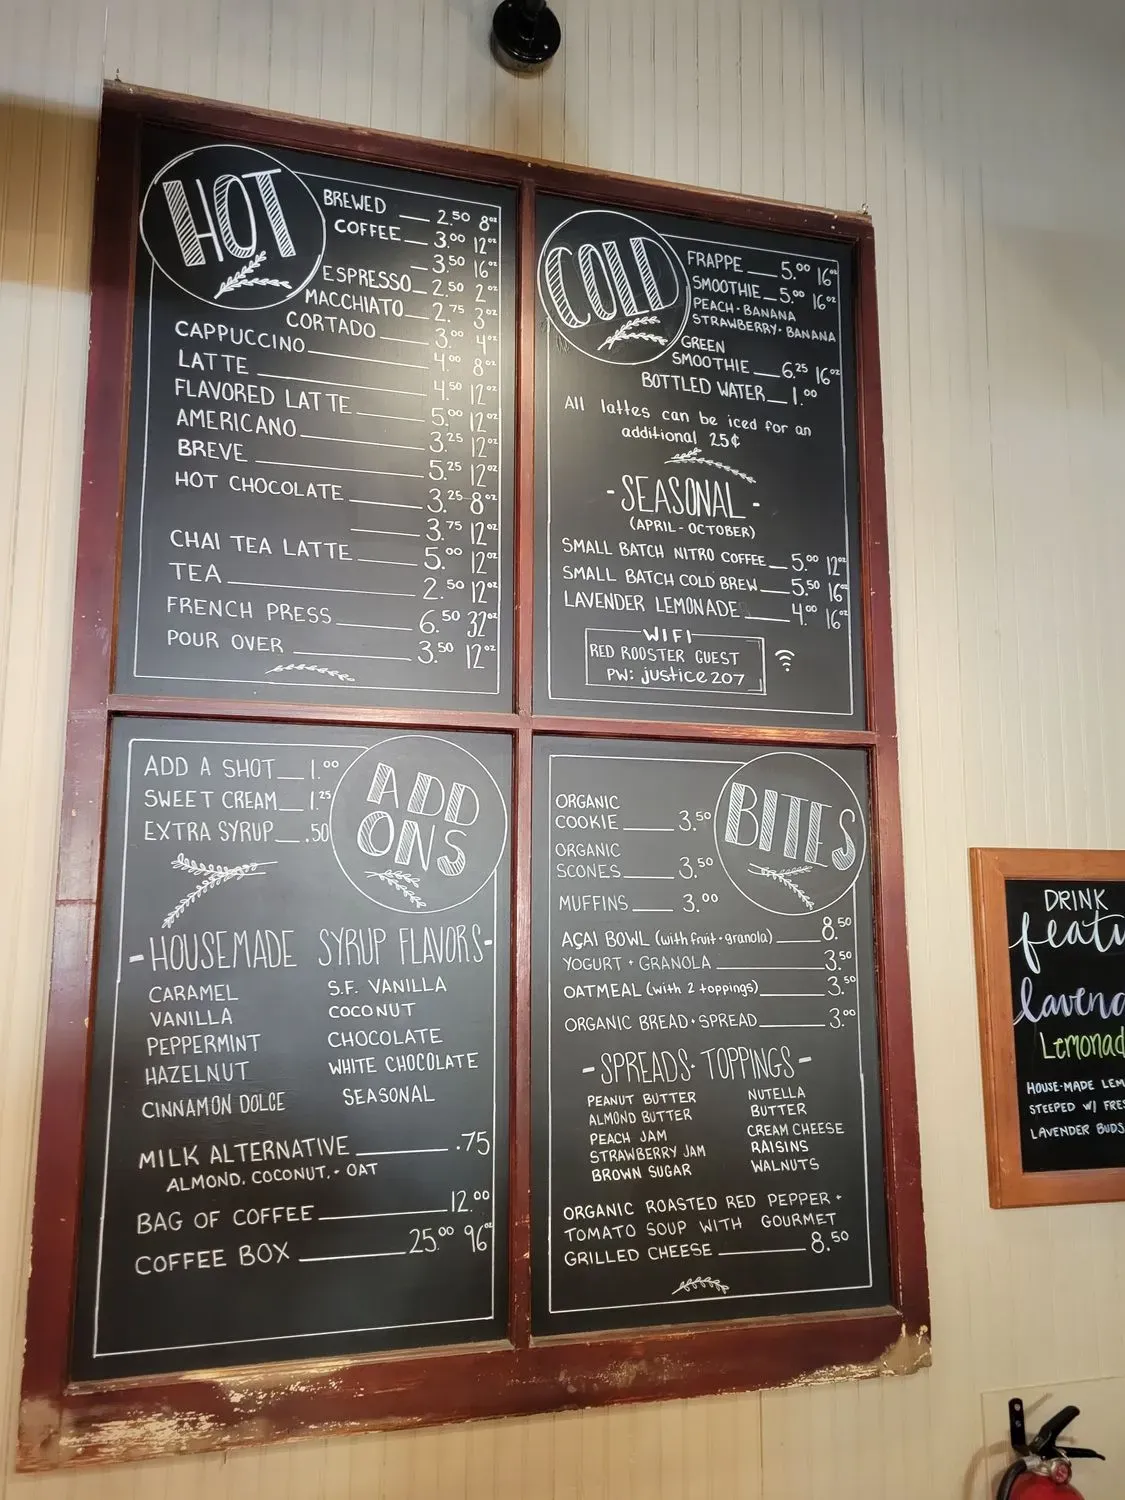 HOT
BREWED 2.50 8oz
COFFEE 3.00 12oz
3.50 16oz
ESPRESSO 2.50 2oz
MACCHIATO 2.75 3oz
CORTADO 3.00 4oz
CAPPUCCINO 4.00 8oz
LATTE 4.50 12oz
FLAVORED LATTE 5.00 12oz
AMERICANO 3.25 12oz
BREVE 5.25 12oz
HOT CHOCOLATE 3.25 8oz
3.75 12oz
CHAI TEA LATTE 5.00 12oz
TEA 2.50 12oz
FRENCH PRESS 6.50 32oz
POUR OVER 3.50 12oz
COLD
FRAPPE 5.00 16oz
SMOOTHIE 5.00 16oz
PEACH·BANANA
STRAWBERRY·BANANA
GREEN
SMOOTHIE 6.25 16oz
BOTTLED WATER 1.00
All lattes can be iced for an
additional 25¢
-SEASONAL-
(APRIL-OCTOBER)
SMALL BATCH NITRO COFFEE 5.00 12oz
SMALL BATCH COLD BREW 5.50 16oz
LAVENDER LEMONADE 4.00 16oz
WIFI
RED ROOSTER GUEST
PW: justice207
ADD ONS
ADD A SHOT 1.00
SWEET CREAM 1.25
EXTRA SYRUP .50
-HOUSEMADE SYRUP FLAVORS-
CARAMEL
VANILLA
PEPPERMINT
HAZELNUT
CINNAMON DOLCE
S.F. VANILLA
COCONUT
CHOCOLATE
WHITE CHOCOLATE
SEASONAL
MILK ALTERNATIVE .75
ALMOND, COCONUT, + OAT
BAG OF COFFEE 12.00
COFFEE BOX 25.00 96oz
BITES
ORGANIC
COOKIE 3.50
ORGANIC
SCONES 3.50
MUFFINS 3.00
AÇAI BOWL (with fruit + granola) 8.50
YOGURT + GRANOLA 3.50
OATMEAL (with 2 toppings) 3.50
ORGANIC BREAD + SPREAD 3.00
-SPREADS + TOPPINGS-
PEANUT BUTTER
ALMOND BUTTER
PEACH JAM
STRAWBERRY JAM
BROWN SUGAR
NUTELLA
BUTTER
CREAM CHEESE
RAISINS
WALNUTS
ORGANIC ROASTED RED PEPPER +
TOMATO SOUP WITH GOURMET
GRILLED CHEESE 8.50
DRINK
featu
lavend
Lemonad
HOUSE-MADE LEM
STEEPED W/ FRES
LAVENDER BUDS